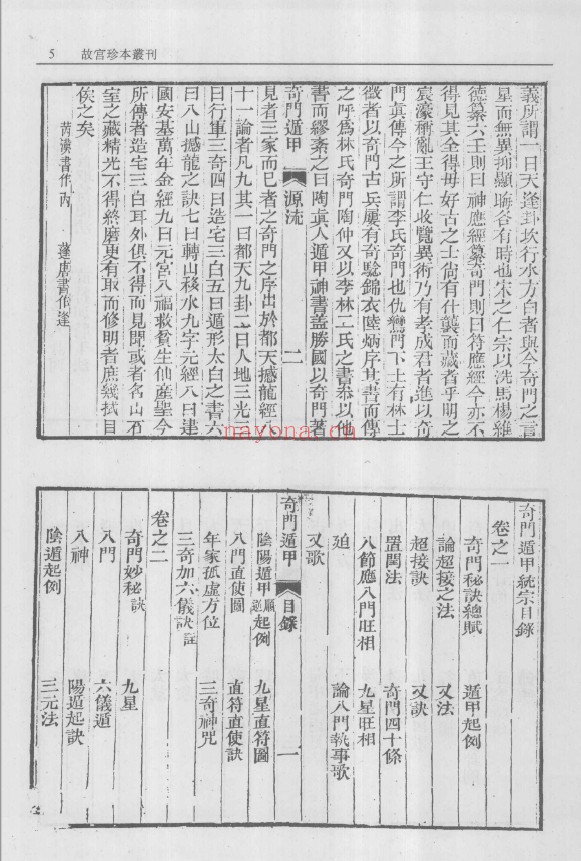 5 故宮珍本叢刊
義所謂一曰天逢卦坎行水方白者與今奇門之言
星而無異抑顯晦各有時也宋之仁宗以洗馬楊維
德纂六壬則曰神應經纂奇門則曰符應經今亦不
得見其全得毋好古之士尚有什襲而藏者乎明之
宸濠稱亂王守仁收覽異術乃有李成君者進以奇
門真傳今之所謂李氏奇門也仇鸞門下士有林士
徵者以奇門占兵屢有奇驗錦衣陸炳序其書而傳
之呼為林氏奇門陶仲文以李林二氏之書叅以他
書而繆紊之曰陶真人遁甲神書蓋勝國以奇門著
奇門遁甲 源流 二
見者三家而已者之奇門之序出於都天撼龍經三
十一論者凡九其一曰都天九卦二曰人地三光三
曰行軍三奇四曰造宅三白五曰遁形太白之書六
曰八山撼龍之訣七曰轉山移水九字元經八曰建
國安基萬年金經九曰元宮八福救貧生仙產聖今
所傳者造宅三白耳外俱不得而見聞或者名山石
室之藏精光不得終磨更有取而修明者庶幾拭目
俟之矣
芮漢書作內 蓬唐書作逢
奇門遁甲統宗目錄
卷之一
奇門秘訣總賦 遁甲起例
論超接之法 又法
超接訣 又訣
置閏法 奇門四十條
八節應八門旺相 九星旺相
廹 論八門執事歌
又歌
奇門遁甲 目錄 一
陰陽遁甲順逆起例 九星直符圖
八門直使圖 直符直使訣
年家孤虛方位 三奇神咒
三奇加六儀訣註
卷之二
奇門妙秘訣 九星
八門 六儀遁
八神 陽遁起訣
陰遁起例 三元法
nayona.cn